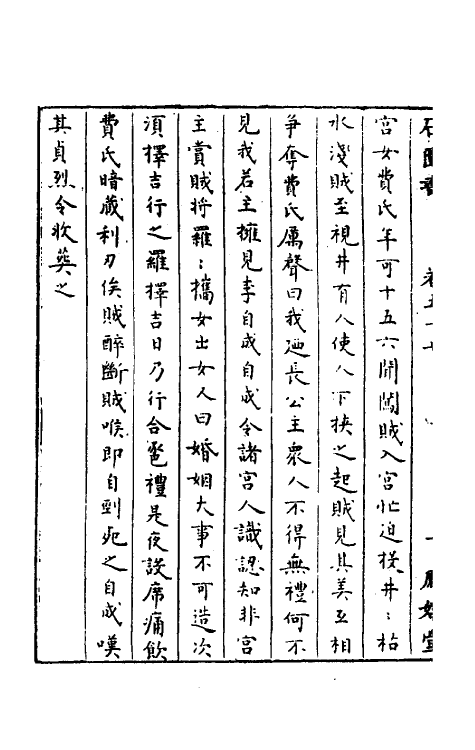 石匱書 卷五十七
宮女費氏年可十五六聞闖賊入宮忙迫投井︰枯
水淺賊至視井有人使人下挾之起賊見其美互相
爭奪費氏厲聲曰我廼長公主眾人不得無禮何不
見我若主擁見李自成自成令諸宮人識認知非宮
主賞賊將羅︰攜女出女人曰婚姻大事不可造次
須擇吉行之羅擇吉日乃行合巹禮是夜設席痛飲
費氏暗藏利刃俟賊醉斷賊喉即自剄死之自成嘆
其貞烈令收葬之